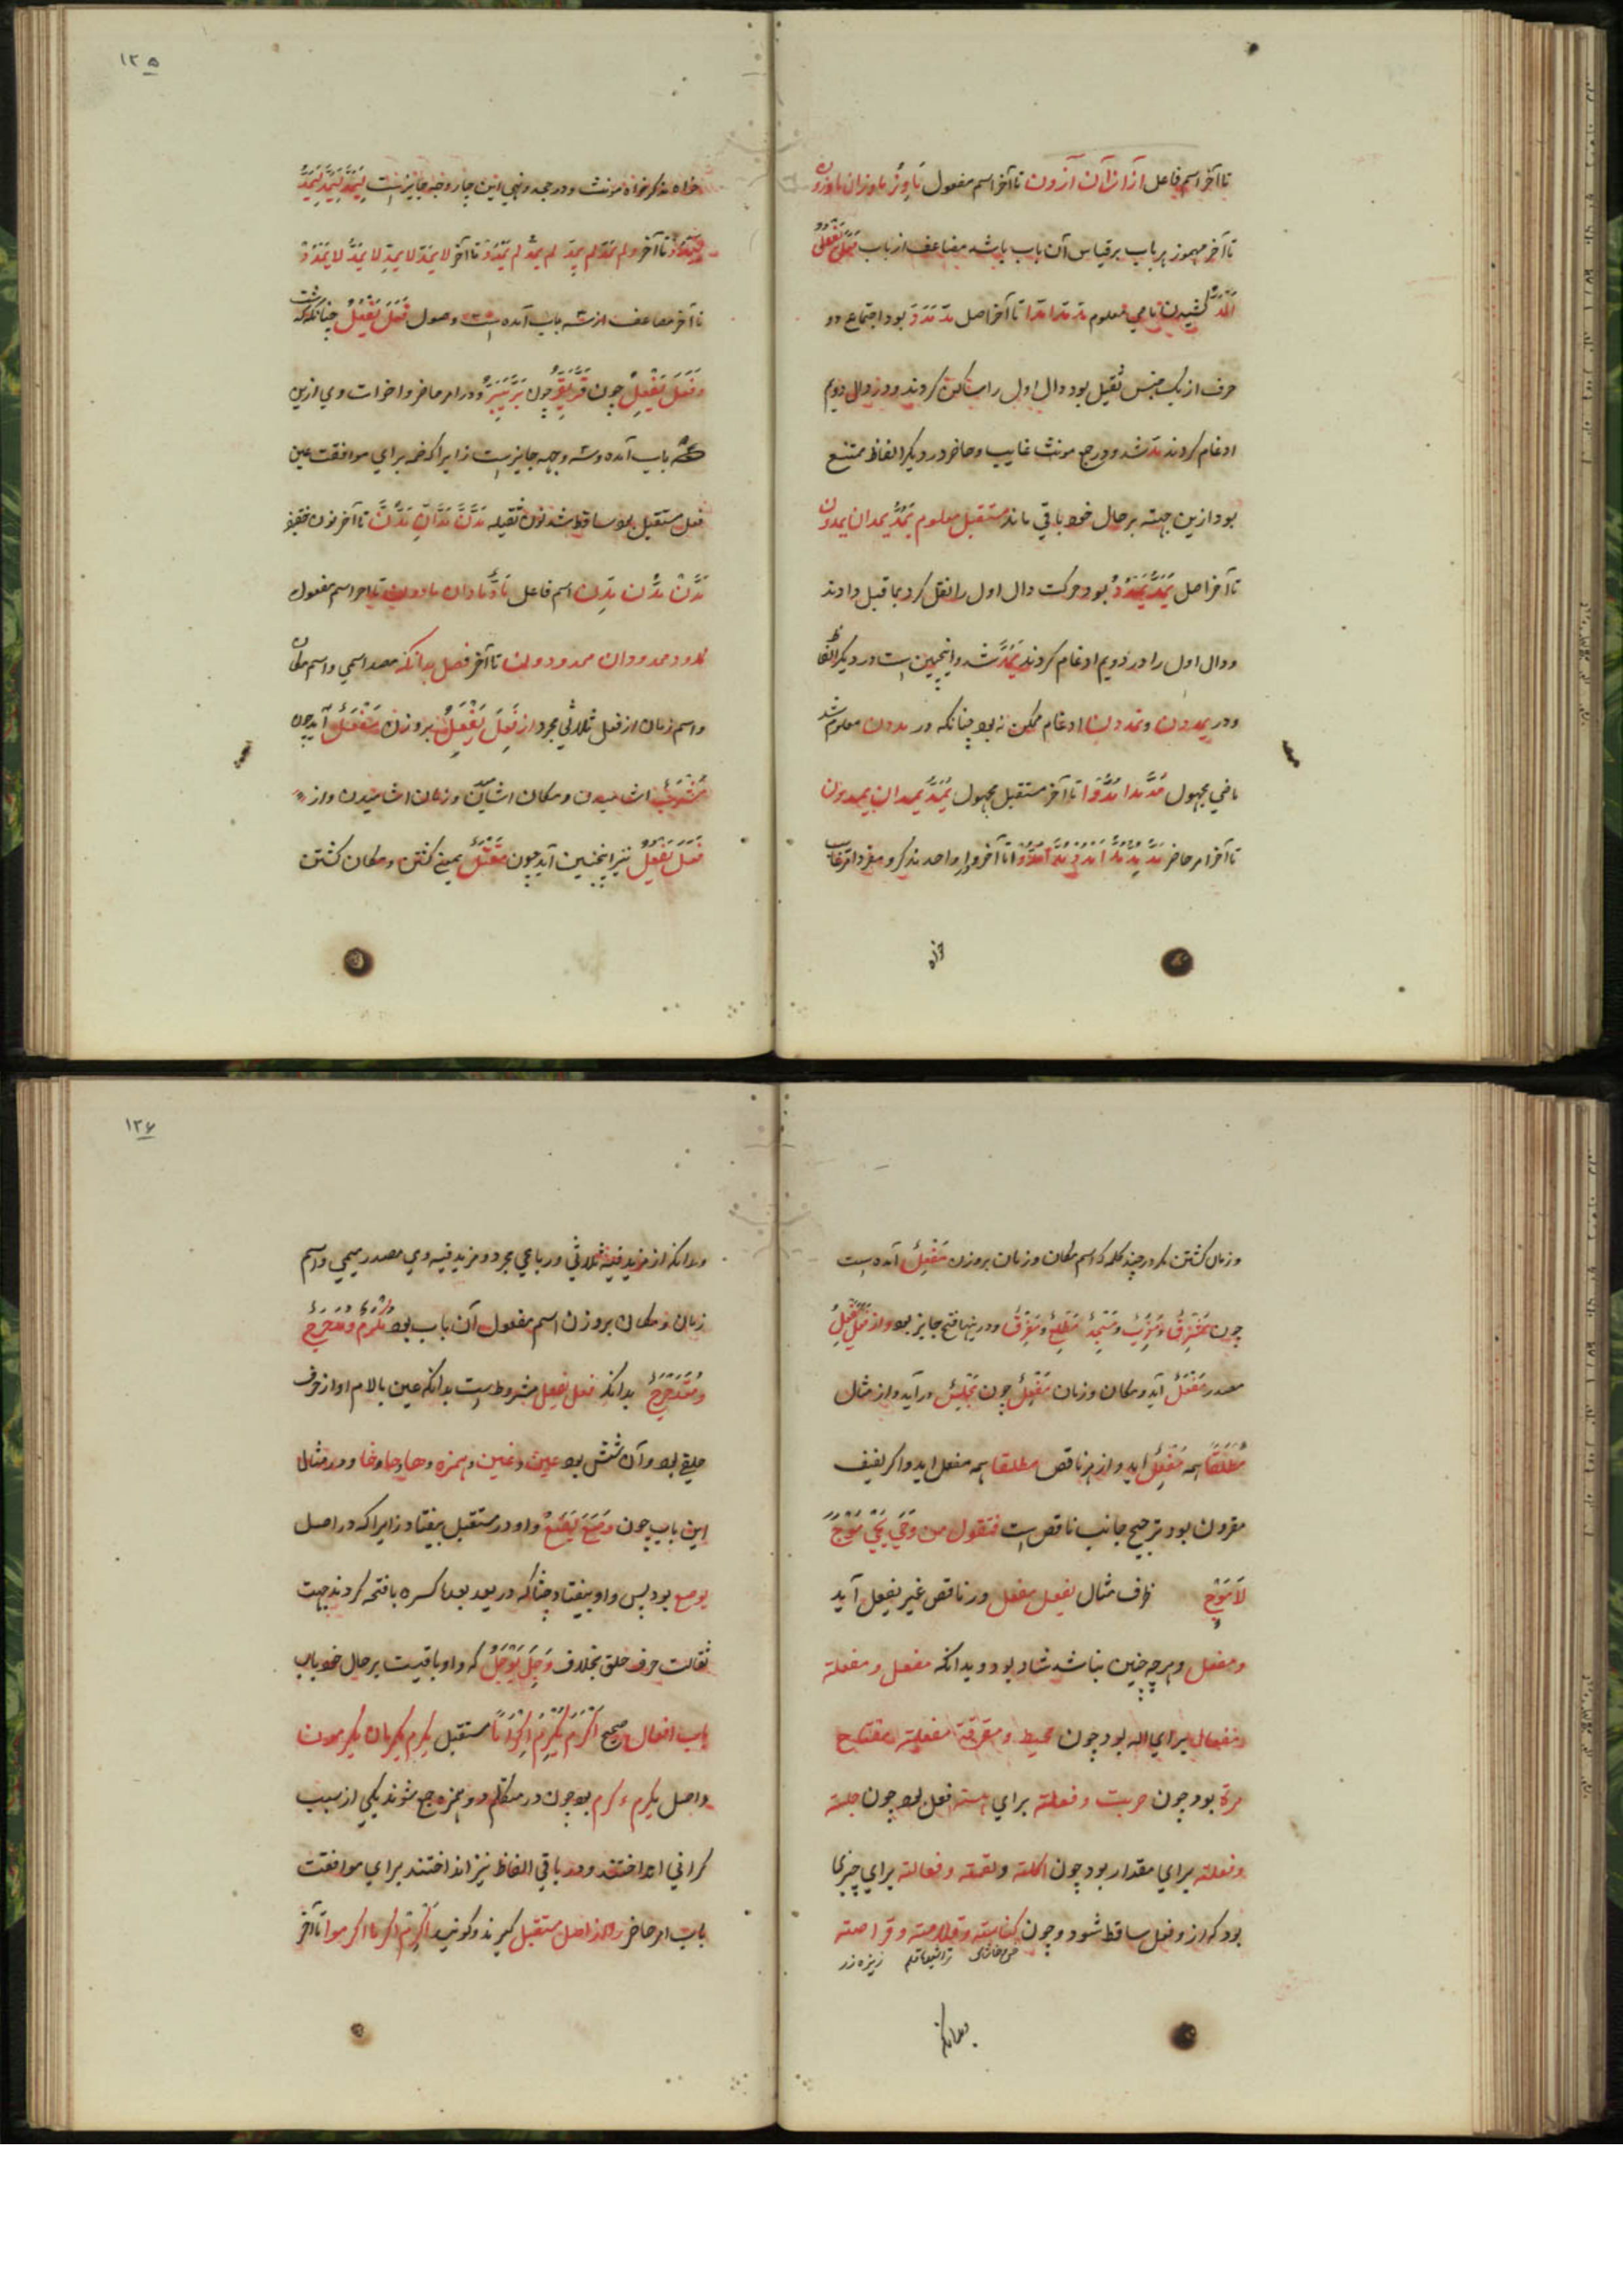 تا آخر اسم فاعل آزٌ ازّان آزون تا آخر اسم مفعول
تا آخر مهموز هر باب بر قیاس آن باب باشد مضاعف از باب فَعَلَ یَفْعُلُ
اَلْمَدُّ کشیدن ماضی معلوم مَدَّ مَدّا مَدّوا تا آخر اصل مدّ مَدَدَ بود اجتماع دو
حرف از یک جنس ثقیل بود دال اول را ساکن کردند و در دال دویم
ادغام کردند مدّ شد و در جمع مونث غایب و حاضر در دیگر الفاظ ممتنع
بود ازین جهته بر حال خود باقی ماند مستقبل معلوم یَمُدُّ یمدان یمدون
تا آخر اصل یَمُدُّ یَمْدُدُ بود حرکت دال اول را نقل کرد بما قبل دادند
و دال اول را در دویم ادغام کردند یَمُدُّ شد و اینچنین است در دیگر الفاظ
و در یمددن و تمددن ادغام ممکن نه بود چنانکه در مددن معلوم شد
ماضی مجهول مُدَّ مُدّا مُدُّوا تا آخر مستقبل مجهول یُمَدُّ یمدان یمدون
تا آخر امر حاضر
خواه
۱۲۵
خواه مذکر خواه مونث و در جحد و نهی این چار وجه جایز است
تا آخر و لم یمدّ لم یمدِّ لم یمدُّ لم یَمْدُدْ تا آخر لا یمدَّ لا یمدِّ لا یمدُّ لا یَمْدُدْ
تا آخر مضاعف از سه باب آمده است وصول فَعَلَ یَفْعُلُ چنانکه گذشت
و فَعَلَ یَفْعِلُ چون فَرَّ یَفِرُّ چون بَرَّ یَبَرُّ و در امر حاضر و اخوات وی ازین
باب آمده و سه وجه جایز است زیرا که ضمه برای موافقت عین
فعل مستقبل بود ساقط شد نون ثقیله مُدَّنَّ مُدّانِّ مُدُّنَّ تا آخر نون خفیفه
مُدَّنْ مُدُّنْ مُدِّنْ اسم فاعل مَادٌّ مادان مادون تا آخر اسم مفعول
ممدود ممدودان ممدودون تا آخر فصل بدانکه مصدر میمی و اسم مکان
و اسم زمان از فعل ثلاثی مجرد از فَعِلَ یَفْعَلُ بر وزن مَفْعَلٌ آید چون
مَشْرَبٌ اشامیدن و مکان اشامیدن و زمان اشامیدن و از
فَعَلَ یَفْعُلُ نیز اینچنین آید چون مَقْتَلٌ بمعنی کشتن و مکان کشتن
و زمان کشتن مگر در چند کلمه که اسم مکان و زمان بر وزن مَفْعِلٌ آمده است
چون مَشْرِقٌ و مَغْرِبٌ و مَسْجِدٌ مَطْلِعٌ و مَفْرِقٌ و درینها فتح جایز بود و از فَعَلَ یَفْعِلُ
مصدر مَفْعَلٌ آید و مکان و زمان مَفْعِلٌ چون مَجْلِسٌ در آید و از مثال
مُطْلَقًا همه مَفْعِلٌ آید و از هر ناقص مطلقا همه مفعل آید و اگر لفیف
مقرون بود ترجیح جانب ناقص است فتقول من
ظرف مثال یفعل مفعل و ناقص غیر یفعل آید
و مفعل و هر چه چنین نباشد شاد بود و بدانکه مفعل و مفعلة
و مفعال برای اله بود چون مخیط و مقرفة مفعلة مفتاح
مرة بود چون ضربت و فعلة برای هیئته فعل بود چون جلسة
و فعلة برای مقدار بود چون اکلة و لقمة و فعالة برای چیزی
بود که از و فعل ساقط شود و چون کناسة و قلامة و قراضة
تراشیده قلم ریزه زر
بدانکه
۱۲۶
و بدانکه از مزید فیه ثلاثی و رباعی مجرد و مزید فیه وی مصدر میمی و اسم
زمان و مکان بر وزن اسم مفعول آن باب بود مُکْرَمٌ و مُدَحْرَجٌ
و مُتَدَحْرَجٌ بدانکه فعل یفعل مشروط است بدانکه عین یا لام او از حرف
حلق بود و آن شش بود عین و غین و همزه و ها و حا و خا و در مثال
این باب چون وَضَعَ یَضَعُ واو در مستقبل بیفتاد زیرا که در اصل
یوضع بود پس واو بیفتاد چنانکه در یعد بعده کسره با فتحه کردند جهت
ثقالت حرف حلق بخلاف وَجِلَ یَوْجَلُ که واو باقیست بر حال خود باب
باب افعال صحیح اَکْرَمَ یُکْرِمُ اِکْرَامًا مستقبل یکرم یکرمان یکرمون
و اصل یکرم ءکرم بود چون در متکلم دو همزه جمع شوند یکی از سبب
گرانی انداختند و در باقی الفاظ نیز انداختند برای موافقت
باب امر حاضر را از اصل مستقبل گیرند و گویند اَکْرِمْ اکرما اکرموا تا آخر